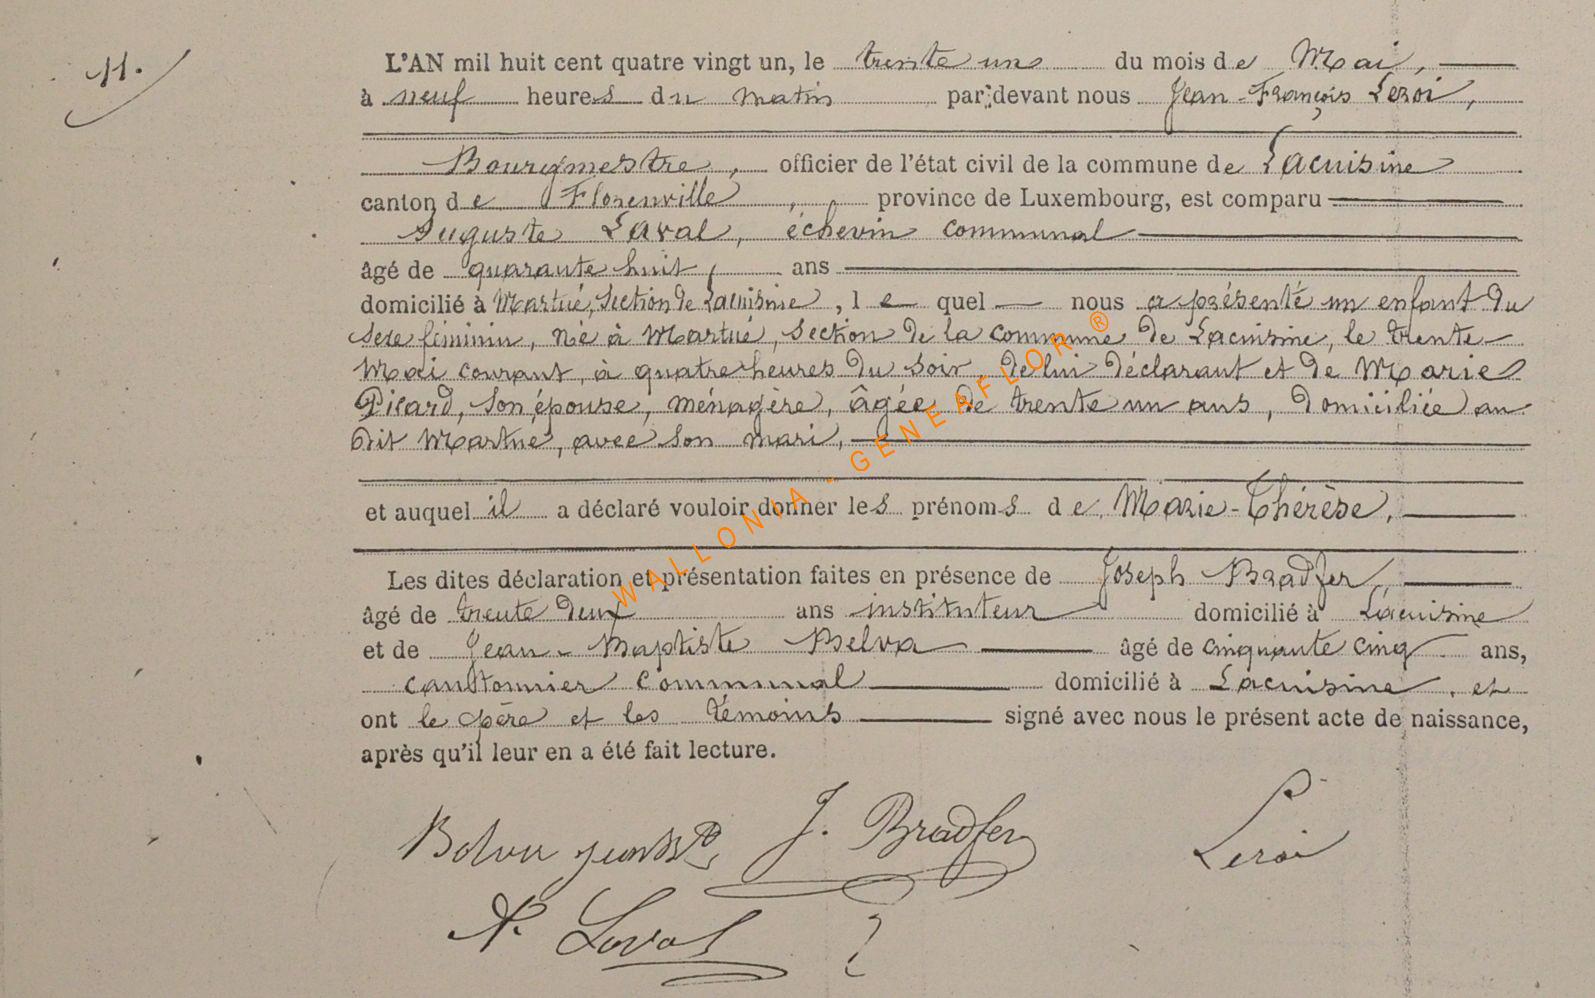 11.
L'AN mil huit cent quatre vingt un, le trente un du mois de Mai,
à neuf heures du matin par devant nous Jean-François Leroi,
Bourgmestre, officier de l'état civil de la commune de Lacuisine
canton de Florenville, province de Luxembourg, est comparu
Auguste Laval, échevin communal
âgé de quarante huit, ans
domicilié à Martué, section de Lacuisine, le quel nous a présenté un enfant du
sexe féminin, né à Martué, section de la commune de Lacuisine, le trente
Mai courant, à quatre heures du soir, de lui déclarant et de Marie
Picard, son épouse, ménagère, âgée de trente un ans, domiciliée au
dit Martué, avec son mari,
et auquel il a déclaré vouloir donner les prénoms de Marie-Thérèse,
Les dites déclaration et présentation faites en présence de Joseph Bradfer,
âgé de trente deux ans instituteur domicilié à Lacuisine
et de Jean-Baptiste Belva âgé de cinquante cinq ans,
cantonnier communal domicilié à Lacuisine, et
ont le père et les témoins signé avec nous le présent acte de naissance,
après qu'il leur en a été fait lecture.
Belva jean Bte J. Bradfer Leroi
A. Laval
WALLONIA - GENEAFLOR ®